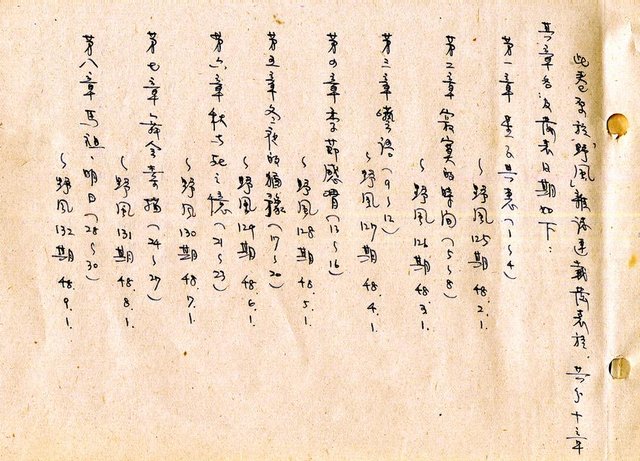 此卷原於「野風」雜誌連載發表於，共分十三章
其章名及發表日期如下：
第一章 （1～4）
～野風125期 48.2.1.
第二章 寂寞的時間（5～8）
～野風126期 48.3.1.
第三章 囈語（9～12）
～野風127期 48.4.1.
第四章 季節感冒（13～16）
～野風128期 48.5.1.
第五章 冬夜的猶豫（17～20）
～野風129期 48.6.1.
第六章 秋與死之憶（21～23）
～野風130期 48.7.1.
第七章 （24～27）
～野風131期 48.8.1.
第八章 馬祖．明日（28～30）
～野風132期 48.9.1.